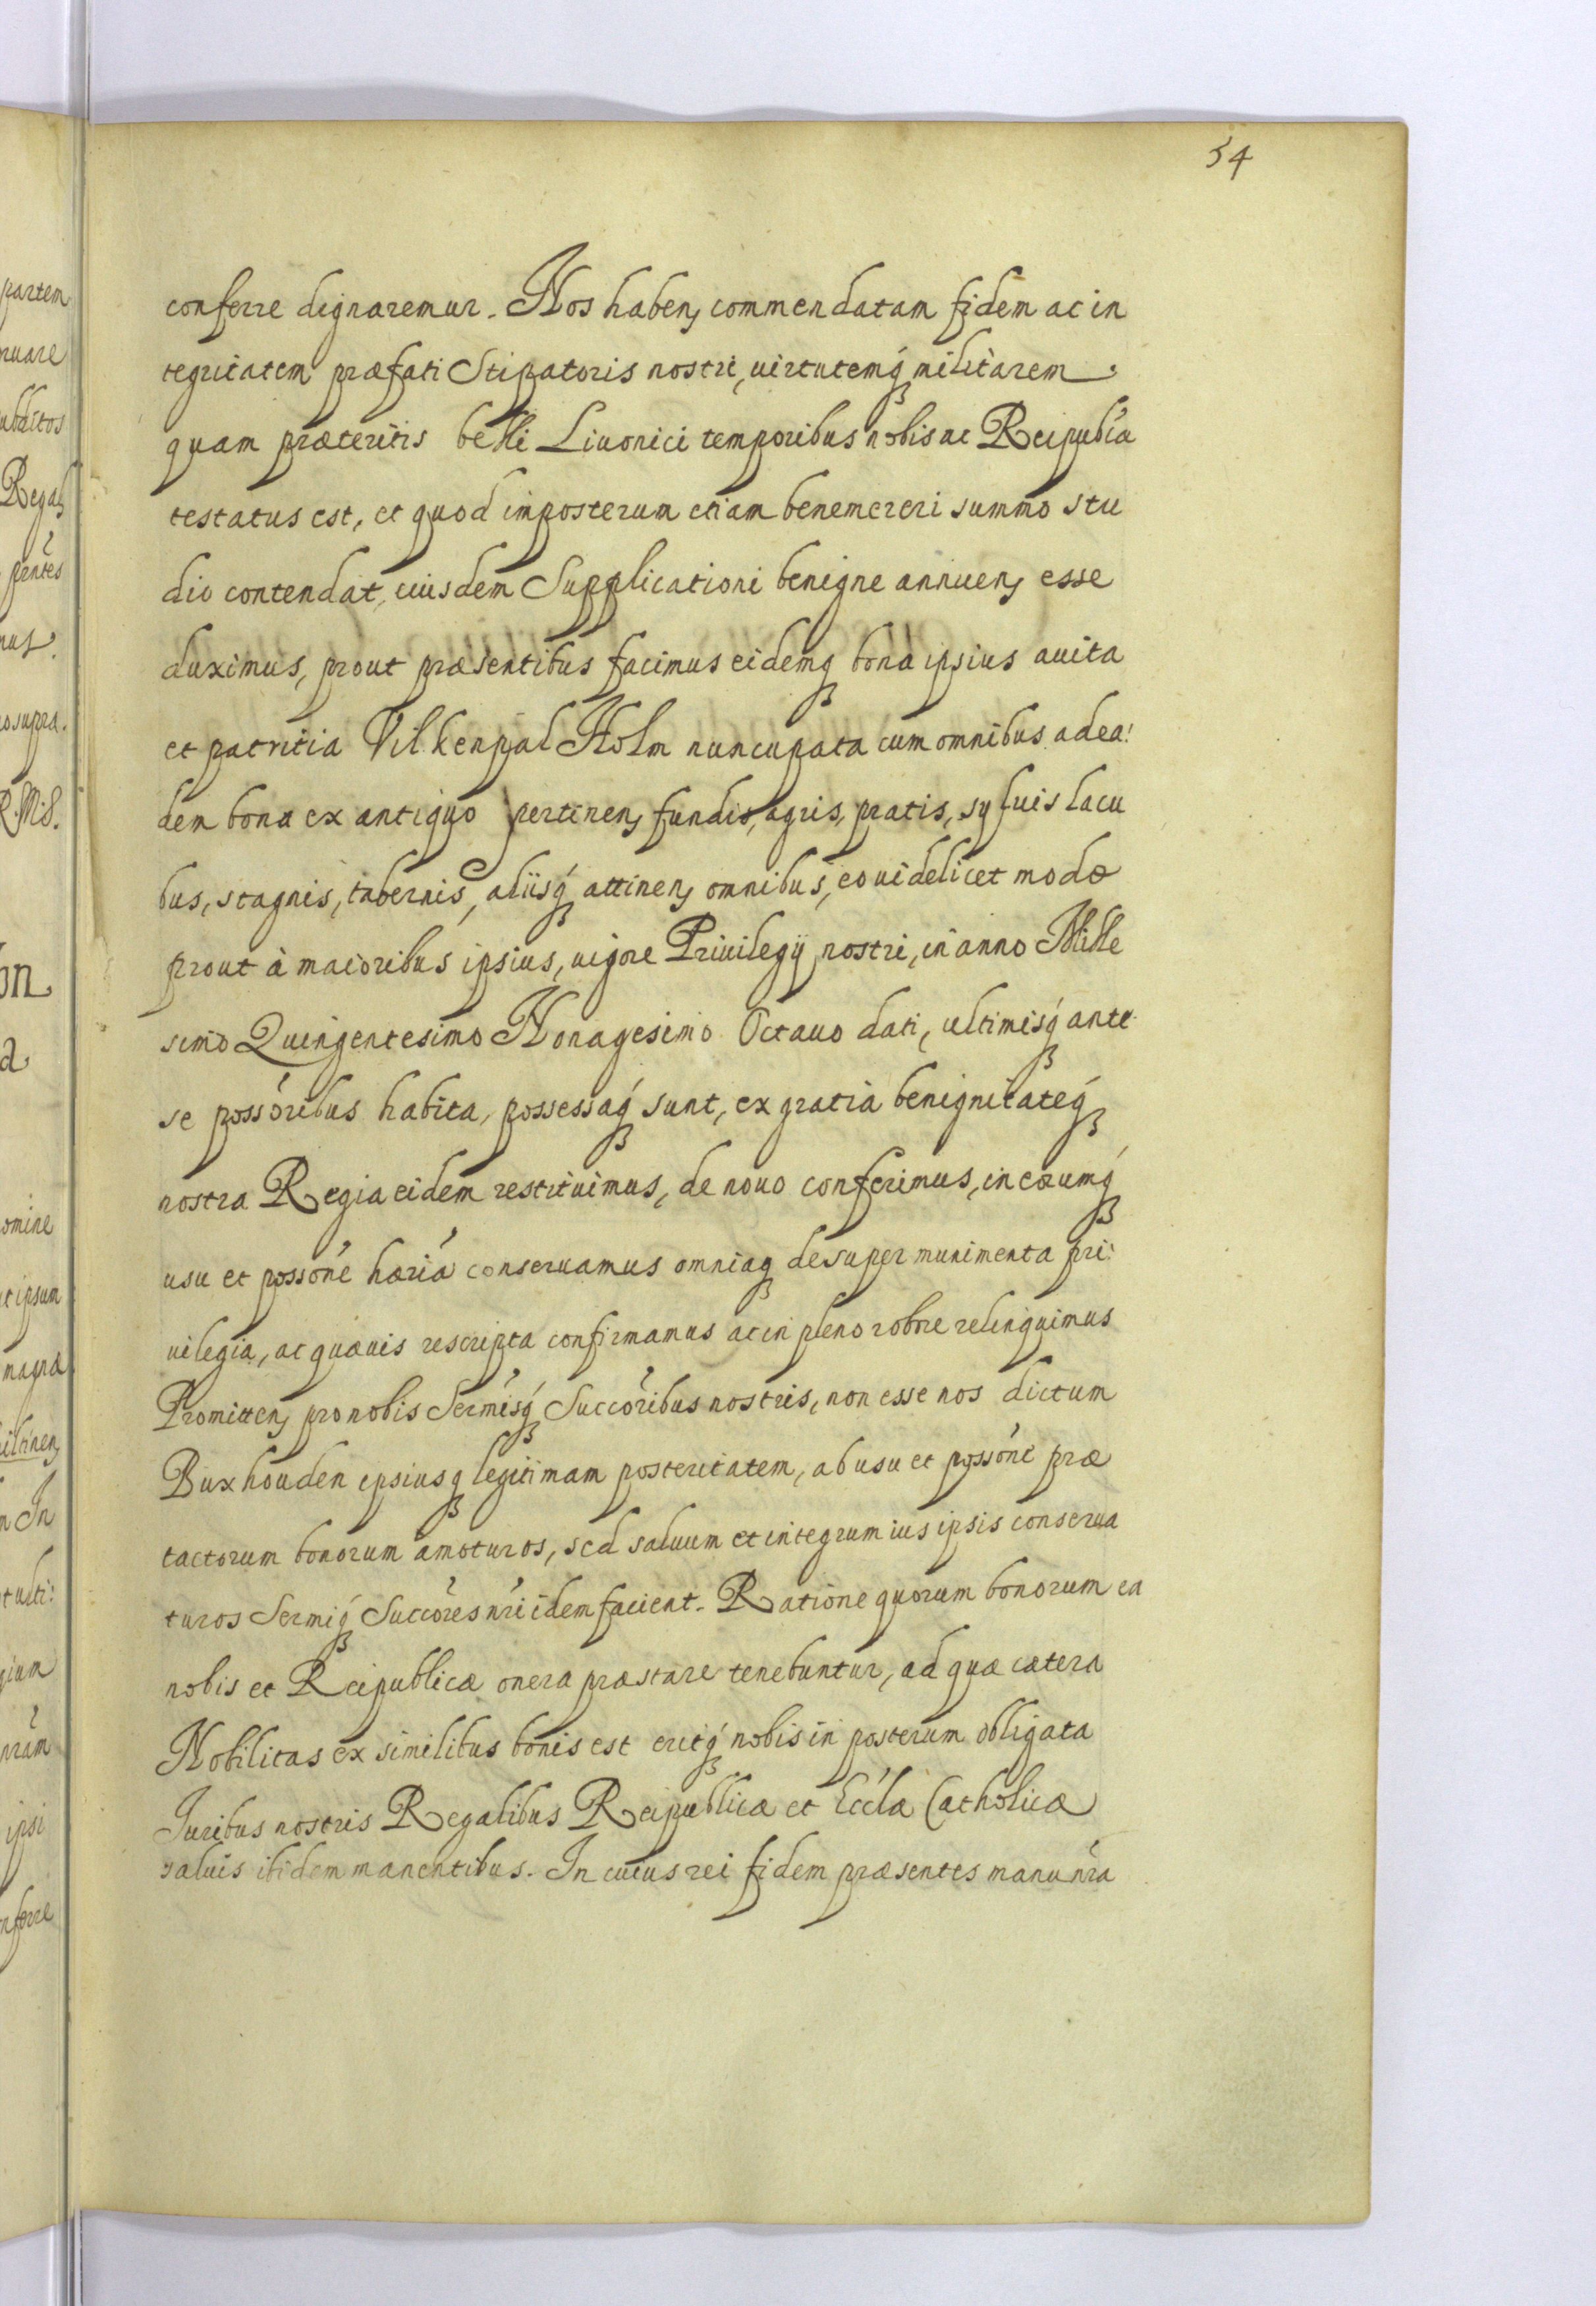 54
conferre dignaremur. Nos haben, commendatam fidem ac in
tegritatem præfati Stipatoris nostri, uirtutemq́ militarem
quam præteritis belli Liuonici temporibus nobis ac Reipublća
testatus est, et quod imposterum etiam benemereri summo stu
dio contendat, eiusdem Supplicationi benigne annuen, esse
duximus, prout præsentibus facimus eidemq bona ipsius auita
et patritia Vilkenpal Holm nuncupata cum omnibus ad ea:
dem bona ex antiquo pertinen, fundis, agris, pratis, syluis lacu
bus, stagnis, tabernis, aliisq́ attinen, omnibus, eo uidelicet modo
prout à maioribus ipsius, uigore Priuilegij nostri, in anno Mille
simo Quingentesimo Nonagesimo Octauo dati, ultimisq́ ante
se possóribus habita, possessaq́ sunt, ex gratia benignitateq́
nostra Regia eidem restituimus, de nouo conferimus, in eorumq́
usu et possóne hæriá conseruamus omniaq desuper munimenta pri:
uilegia, ac quæuis rescripta confirmamus ac in pleno robore relinquimus
Promitten, pro nobis Sermisq́ Succóribus nostris, non esse nos dictum
Buxhouden ipsiusq legitimam posteritatem, ab usu et possóne præ
tactorum bonorum amoturos, sed saluum et integrum ius ipsis conserua
turos Sermiq́ Succóres nŕi idem facient. Ratione quorum bonorum ea
nobis et Reipublicæ onera præstare tenebuntur, ad quæ cætera
Nobilitas ex similibus bonis est eritq́ nobis in posterum obligata
Iuribus nostris Regalibus Reipublicæ et Eccla Catholicæ
saluis ibidem manentibus. In cuius rei fidem præsentes manu nŕa